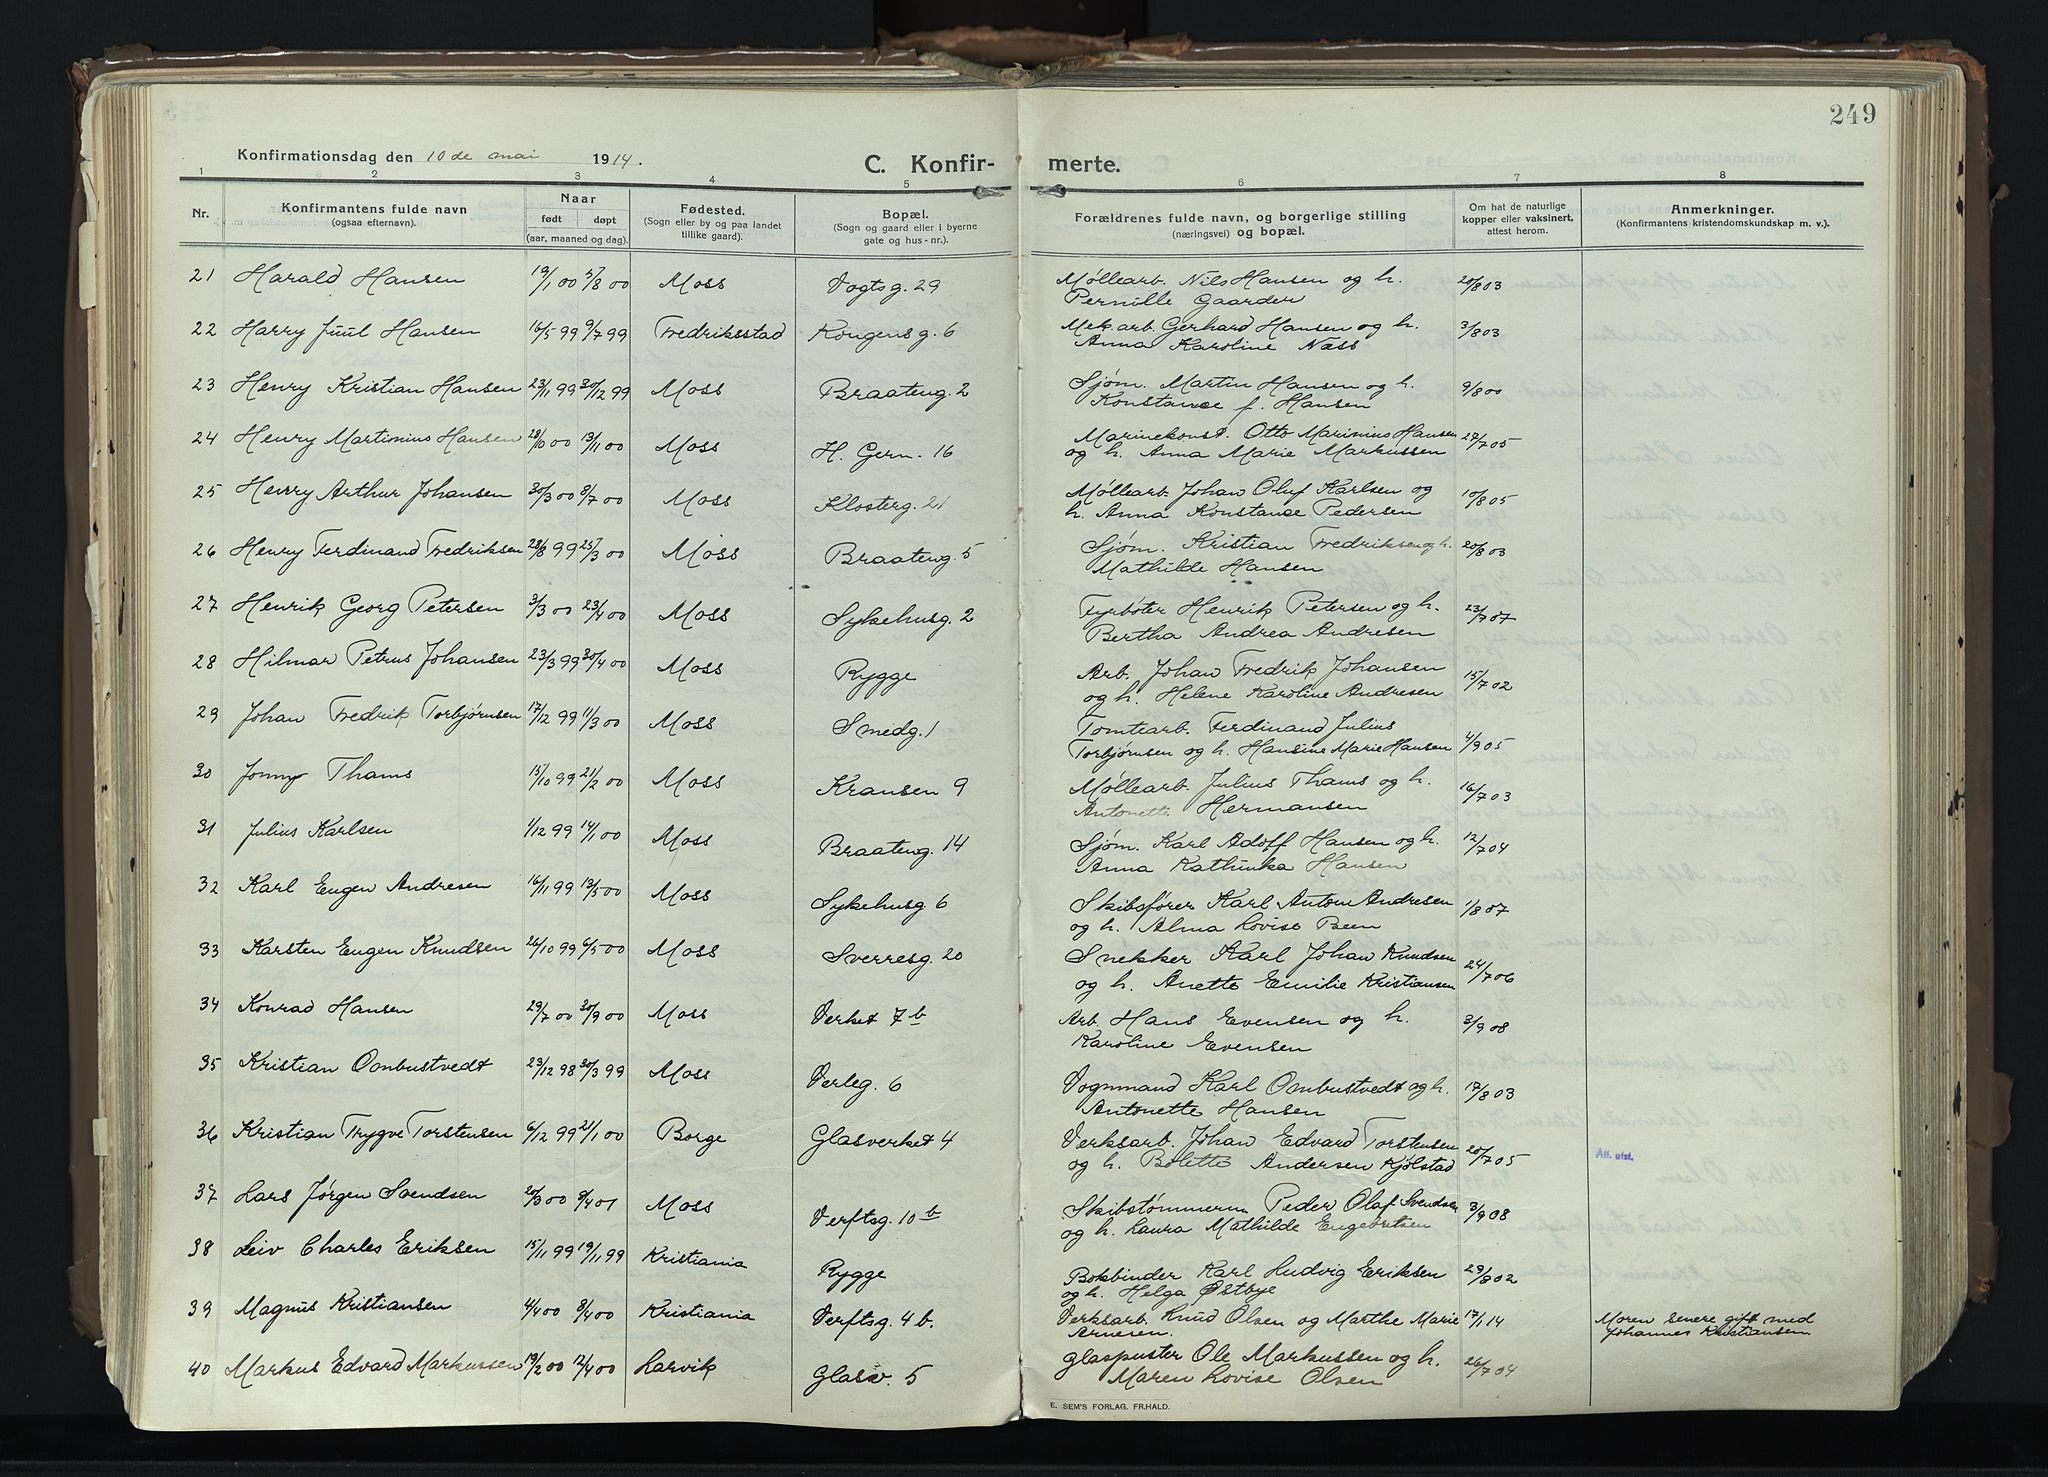 249
Konfirmationsdag den 10 de mai 1914.
C. Konfirmerte.
1 2 3 4 5 6 7 8
Nr. Konfirmantens fulde navn (ogsaa efternavn). Naar født døpt (aar, maaned og dag). Fødested. (Sogn eller by og paa landet tillike gaard). Bopæl. (Sogn og gaard eller i byerne gate og hus-nr.). Forældrenes fulde navn, og borgerlige stilling (næringsvei) og bopæl. Om hat de naturlige kopper eller vaksinert, attest herom. Anmerkninger. (Konfirmantens kristendomskundskap m. v.).
21 Harald Hansen 19/1 00 5/8 00 Moss Vogtsg. 29 Møllearb. Nils Hansen og h. 20/8 03
Pernille Gaarder
22 Harry Juul Hansen 16/5 99 9/7 99 Fredriksstad Kongensg. 6 Mek. arb. Gerhard Hansen og h. 3/8 03
Anna Karoline Næss
23 Henry Kristian Hansen 23/11 99 30/12 99 Moss Braateng. 2 Sjøm. Martin Hansen og h. 9/8 00
Konstance f. Hansen
24 Henry Martinius Hansen 28/10 00 13/11 00 Moss H. Gern. 16 Marinekonst. Otto Marinius Hansen 27/7 05
og h. Anna Marie Markussen
25 Henry Arthur Johansen 30/3 00 8/7 00 Moss Klosterg. 21 Møllearb. Johan Oluf Karlsen og 10/8 05
h. Anna Konstance Pedersen
26 Henry Ferdinand Fredriksen 28/8 99 25/3 00 Moss Braateng. 5 Sjøm. Kristian Fredriksen og h. 20/8 03
Mathilde Hansen
27 Henrik Georg Petersen 3/3 00 23/4 00 Moss Sykehusg. 2 Fyrbøter Henrik Petersen og h. 23/7 07
Bertha Andrea Andresen
28 Hilmar Petrus Johansen 23/3 99 30/4 00 Moss Rygge Arb. Johan Fredrik Johansen 15/7 02
og h. Helene Karoline Andresen
29 Johan Fredrik Torbjørnsen 17/12 99 11/3 00 Moss Smedg. 1 Tomtearb. Ferdinand Julius
Torbjørnsen og h. Hansine Marie Hansen 4/9 05
30 Jonny Thams 15/10 99 21/2 00 Moss Kransen 9 Møllearb. Julius Thams og h. 16/7 03
Antonette Hermansen
31 Julius Karlsen 1/12 99 14/1 00 Moss Braateng. 14 Sjøm. Karl Adolf Hansen og h. 12/7 04
Anna Kathinka Hansen
32 Karl Eugen Andresen 16/11 99 13/5 00 Moss Sykehusg 6 Skibsfører Karl Anton Andresen 1/8 07
og h. Alma Lovise Been
33 Karsten Eugen Knudsen 26/10 99 6/5 00 Moss Sverresg. 20 Snekker Karl Johan Knudsen 24/7 06
og h. Anette Emilie Kristiansen
34 Konrad Hansen 29/7 00 30/9 00 Moss Verket 7 b Arb. Hans Evensen og h. 3/9 08
Karoline Evensen
35 Kristian Ombustvedt 23/12 98 30/3 99 Moss Verleg. 6 Vognmand Karl Ombustvedt og h. 17/8 03
Antonette Hansen
36 Kristian Trygve Torstensen 6/12 99 21/1 00 Borge Glasverket 4 Verksarb. Johan Edvard Torstensen 20/7 05 Att. utst.
og h. Bolette Andersen Kjølstad
37 Lars Jørgen Svendsen 20/3 00 8/4 01 Moss Verftsg. 10 b Skibstømmerm Peder Olaf Svendsen 3/9 08
og h. Laura Mathilde Engebretsen
38 Leiv Charles Eriksen 15/11 99 19/11 99 Kristiania Rygge Bokbinder Karl Ludvig Eriksen 29/8 02
og h. Helga Østbye
39 Magnus Kristiansen 4/4 00 8/4 00 Kristiania Verftsg. 4 b. Verksarb. Knud Olsen og Marthe Marie 17/1 14 Moren senere gift med
Arnesen. Johannes Kristiansen
40 Markus Edvard Markussen 19/2 00 12/4 00 Larvik Glasv. 5 Glaspuster Ole Markussen og h. 26/7 04
Maren Lovise Olsen
E. SEM'S FORLAG. FR.HALD.